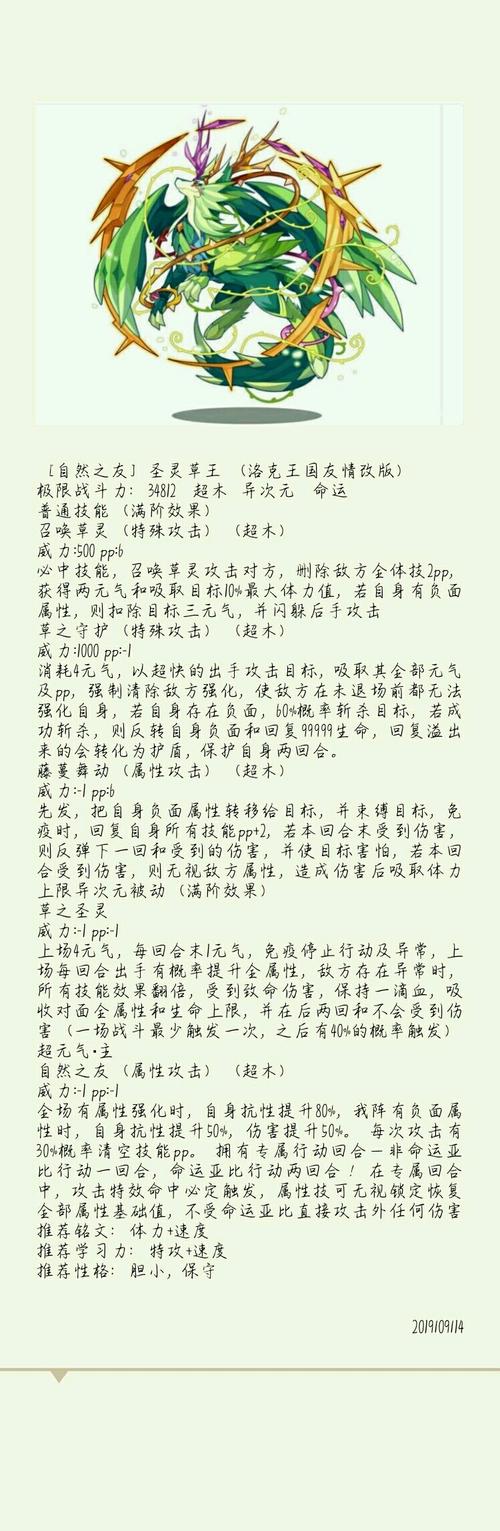 ［自然之友］圣灵草王 （洛克王国友情改版）
极限战斗力：34812 超木 异次元 命运
普通技能（满阶效果）
召唤草灵（特殊攻击）（超木）
威力:500 pp:6
必中技能，召唤草灵攻击对方，删除敌方全体技2pp，
获得两元气和吸取目标10%最大体力值，若自身有负面
属性，则扣除目标三元气，并闪躲后手攻击
草之守护（特殊攻击）（超木）
威力:1000 pp:-1
消耗4元气，以超快的出手攻击目标，吸取其全部元气
及pp，强制清除敌方强化，使敌方在未退场前都无法
强化自身，若自身存在负面，60%概率斩杀目标，若成
功斩杀，则反转自身负面和回复99999生命，回复溢出
来的会转化为护盾，保护自身两回合。
藤蔓舞动（属性攻击）（超木）
威力:-1 pp:6
先发，把自身负面属性转移给目标，并束缚目标，免
疫时，回复自身所有技能pp+2，若本回合未受到伤害，
则反弹下一回和受到的伤害，并使目标害怕，若本回
合受到伤害，则无视敌方属性，造成伤害后吸取体力
上限异次元被动（满阶效果）
草之圣灵
威力:-1 pp:-1
上场4元气，每回合末1元气，免疫停止行动及异常，上
场每回合出手有概率提升全属性，敌方存在异常时，
所有技能效果翻倍，受到致命伤害，保持一滴血，吸
收对面全属性和生命上限，并在后两回和不会受到伤
害（一场战斗最少触发一次，之后有40%的概率触发）
超元气·主
自然之友（属性攻击）（超木）
威力:-1 pp:-1
全场有属性强化时，自身抗性提升80%，我阵有负面属
性时，自身抗性提升50%，伤害提升50%。 每次攻击有
30%概率清空技能pp。 拥有专属行动回合—非命运亚
比行动一回合，命运亚比行动两回合！ 在专属回合
中，攻击特效命中必定触发，属性技可无视锁定恢复
全部属性基础值，不受命运亚比直接攻击外任何伤害
推荐铭文：体力+速度
推荐学习力：特攻+速度
推荐性格：胆小，保守
2019109114